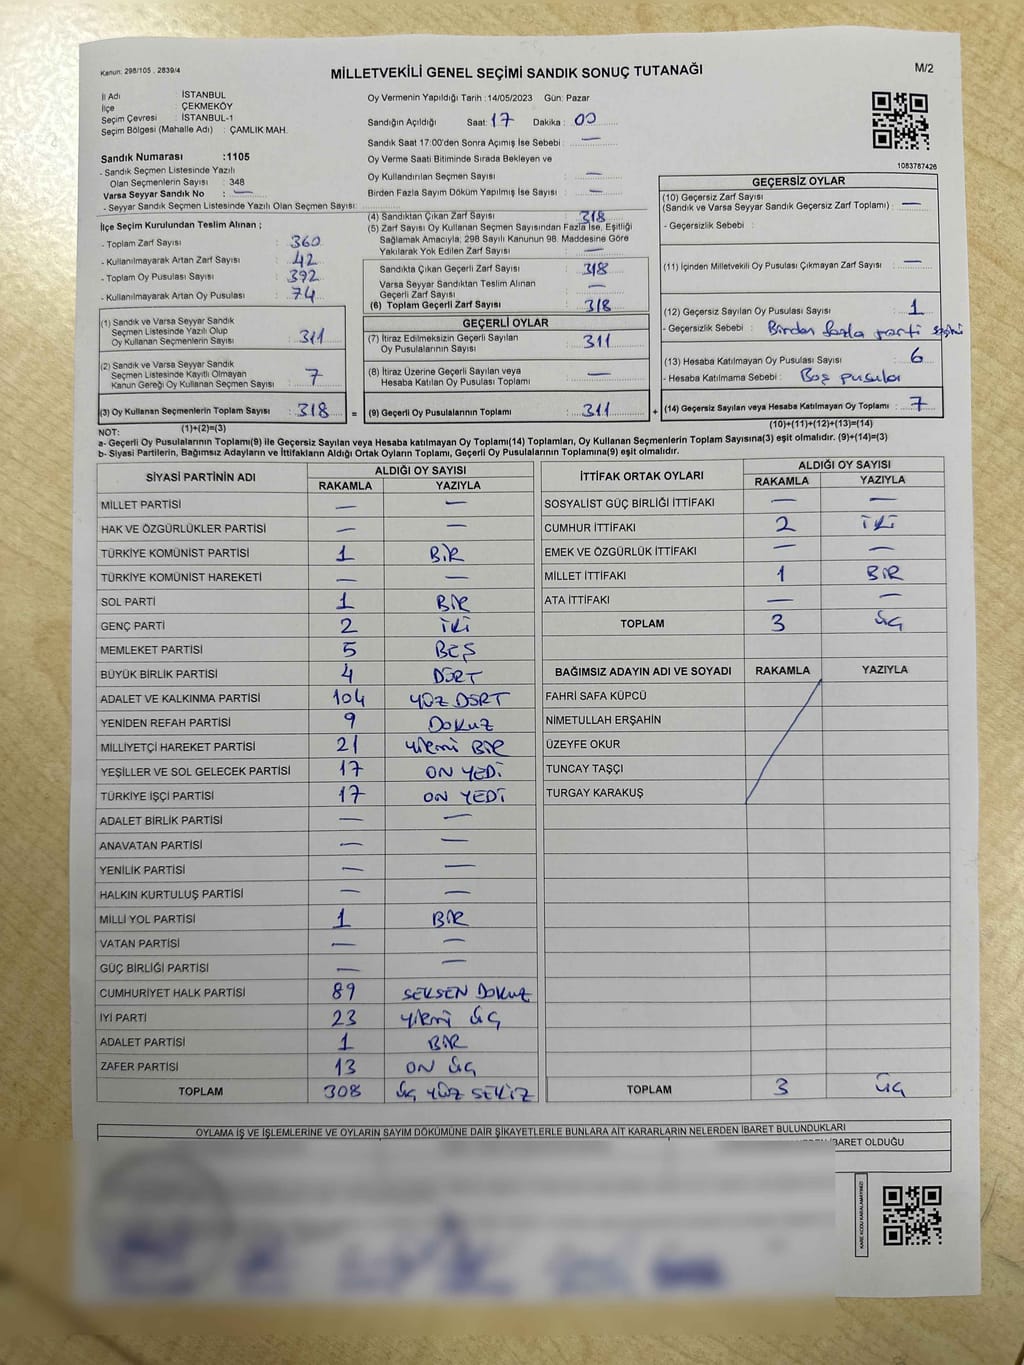 Kanun: 298/105 , 2839/4
MİLLETVEKİLİ GENEL SEÇİMİ SANDIK SONUÇ TUTANAĞI
M/2
İl Adı İSTANBUL
İlçe ÇEKMEKÖY
Seçim Çevresi : İSTANBUL-1
Seçim Bölgesi (Mahalle Adı) : ÇAMLIK MAH.
Sandık Numarası :1105
- Sandık Seçmen Listesinde Yazılı
Olan Seçmenlerin Sayısı : 348
Varsa Seyyar Sandık No : —
- Seyyar Sandık Seçmen Listesinde Yazılı Olan Seçmen Sayısı:
Oy Vermenin Yapıldığı Tarih :14/05/2023 Gün: Pazar
Sandığın Açıldığı Saat: 17 Dakika : 00
Sandık Saat 17:00'den Sonra Açımış İse Sebebi : —
Oy Verme Saati Bitiminde Sırada Bekleyen ve
Oy Kullandırılan Seçmen Sayısı : —
Birden Fazla Sayım Döküm Yapılmış İse Sayısı : —
1083787426
İlçe Seçim Kurulundan Teslim Alınan ;
- Toplam Zarf Sayısı : 360
- Kullanılmayarak Artan Zarf Sayısı : 42
- Toplam Oy Pusulası Sayısı : 392
- Kullanılmayarak Artan Oy Pusulası : 74
(1) Sandık ve Varsa Seyyar Sandık
Seçmen Listesinde Yazılı Olup
Oy Kullanan Seçmenlerin Sayısı : 311
(2) Sandık ve Varsa Seyyar Sandık
Seçmen Listesinde Kayıtlı Olmayan
Kanun Gereği Oy Kullanan Seçmen Sayısı : 7
(3) Oy Kullanan Seçmenlerin Toplam Sayısı : 318 =
(1)+(2)=(3)
(4) Sandıktan Çıkan Zarf Sayısı : 318
(5) Zarf Sayısı Oy Kullanan Seçmen Sayısından Fazla İse, Eşitliği
Sağlamak Amacıyla, 298 Sayılı Kanunun 98. Maddesine Göre
Yakılarak Yok Edilen Zarf Sayısı : —
Sandıkta Çıkan Geçerli Zarf Sayısı : 318
Varsa Seyyar Sandıktan Teslim Alınan
Geçerli Zarf Sayısı : —
(6) Toplam Geçerli Zarf Sayısı : 318
GEÇERLİ OYLAR
(7) İtiraz Edilmeksizin Geçerli Sayılan
Oy Pusulalarının Sayısı : 311
(8) İtiraz Üzerine Geçerli Sayılan veya
Hesaba Katılan Oy Pusulası Toplamı : —
(9) Geçerli Oy Pusulalarının Toplamı : 311 +
GEÇERSİZ OYLAR
(10) Geçersiz Zarf Sayısı
(Sandık ve Varsa Seyyar Sandık Geçersiz Zarf Toplamı) : —
- Geçersizlik Sebebi :
(11) İçinden Milletvekili Oy Pusulası Çıkmayan Zarf Sayısı : —
(12) Geçersiz Sayılan Oy Pusulası Sayısı : 1
- Geçersizlik Sebebi : Birden fazla parti
(13) Hesaba Katılmayan Oy Pusulası Sayısı : 6
- Hesaba Katılmama Sebebi : Boş pusula
(14) Geçersiz Sayılan veya Hesaba Katılmayan Oy Toplamı : 7
(10)+(11)+(12)+(13)=(14)
NOT:
a- Geçerli Oy Pusulalarının Toplamı(9) ile Geçersiz Sayılan veya Hesaba katılmayan Oy Toplamı(14) Toplamları, Oy Kullanan Seçmenlerin Toplam Sayısına(3) eşit olmalıdır. (9)+(14)=(3)
b- Siyasi Partilerin, Bağımsız Adayların ve İttifakların Aldığı Oyların Toplamı, Geçerli Oy Pusulalarının Toplamına(9) eşit olmalıdır.
SİYASİ PARTİNİN ADI ALDIĞI OY SAYISI
RAKAMLA YAZIYLA
MİLLET PARTİSİ — —
HAK VE ÖZGÜRLÜKLER PARTİSİ — —
TÜRKİYE KOMÜNİST PARTİSİ 1 BİR
TÜRKİYE KOMÜNİST HAREKETİ — —
SOL PARTİ 1 BİR
GENÇ PARTİ 2 İKİ
MEMLEKET PARTİSİ 5 BEŞ
BÜYÜK BİRLİK PARTİSİ 4 DÖRT
ADALET VE KALKINMA PARTİSİ 104 YÜZ DÖRT
YENİDEN REFAH PARTİSİ 9 DOKUZ
MİLLİYETÇİ HAREKET PARTİSİ 21 YİRMİ BİR
YEŞİLLER VE SOL GELECEK PARTİSİ 17 ON YEDİ
TÜRKİYE İŞÇİ PARTİSİ 17 ON YEDİ
ADALET BİRLİK PARTİSİ — —
ANAVATAN PARTİSİ — —
YENİLİK PARTİSİ — —
HALKIN KURTULUŞ PARTİSİ — —
MİLLİ YOL PARTİSİ 1 BİR
VATAN PARTİSİ — —
GÜÇ BİRLİĞİ PARTİSİ — —
CUMHURİYET HALK PARTİSİ 89 SEKSEN DOKUZ
İYİ PARTİ 23 YİRMİ ÜÇ
ADALET PARTİSİ 1 BİR
ZAFER PARTİSİ 13 ON ÜÇ
TOPLAM 308 ÜÇ YÜZ SEKİZ
İTTİFAK ORTAK OYLARI ALDIĞI OY SAYISI
RAKAMLA YAZIYLA
SOSYALIST GÜÇ BİRLİĞİ İTTİFAKI — —
CUMHUR İTTİFAKI 2 İKİ
EMEK VE ÖZGÜRLÜK İTTİFAKI — —
MİLLET İTTİFAKI 1 BİR
ATA İTTİFAKI — —
TOPLAM 3 ÜÇ
BAĞIMSIZ ADAYIN ADI VE SOYADI RAKAMLA YAZIYLA
FAHRİ SAFA KÜPCÜ
NİMETULLAH ERŞAHİN
ÜZEYFE OKUR
TUNCAY TAŞÇI
TURGAY KARAKUŞ
TOPLAM 3 ÜÇ
OYLAMA İŞ VE İŞLEMLERİNE VE OYLARIN SAYIM DÖKÜMÜNE DAİR ŞİKAYETLERLE BUNLARA AİT KARARLARIN NELERDEN İBARET BULUNDUKLARI
İBARET OLDUĞU
KARE KODU KARALAMAYINIZ